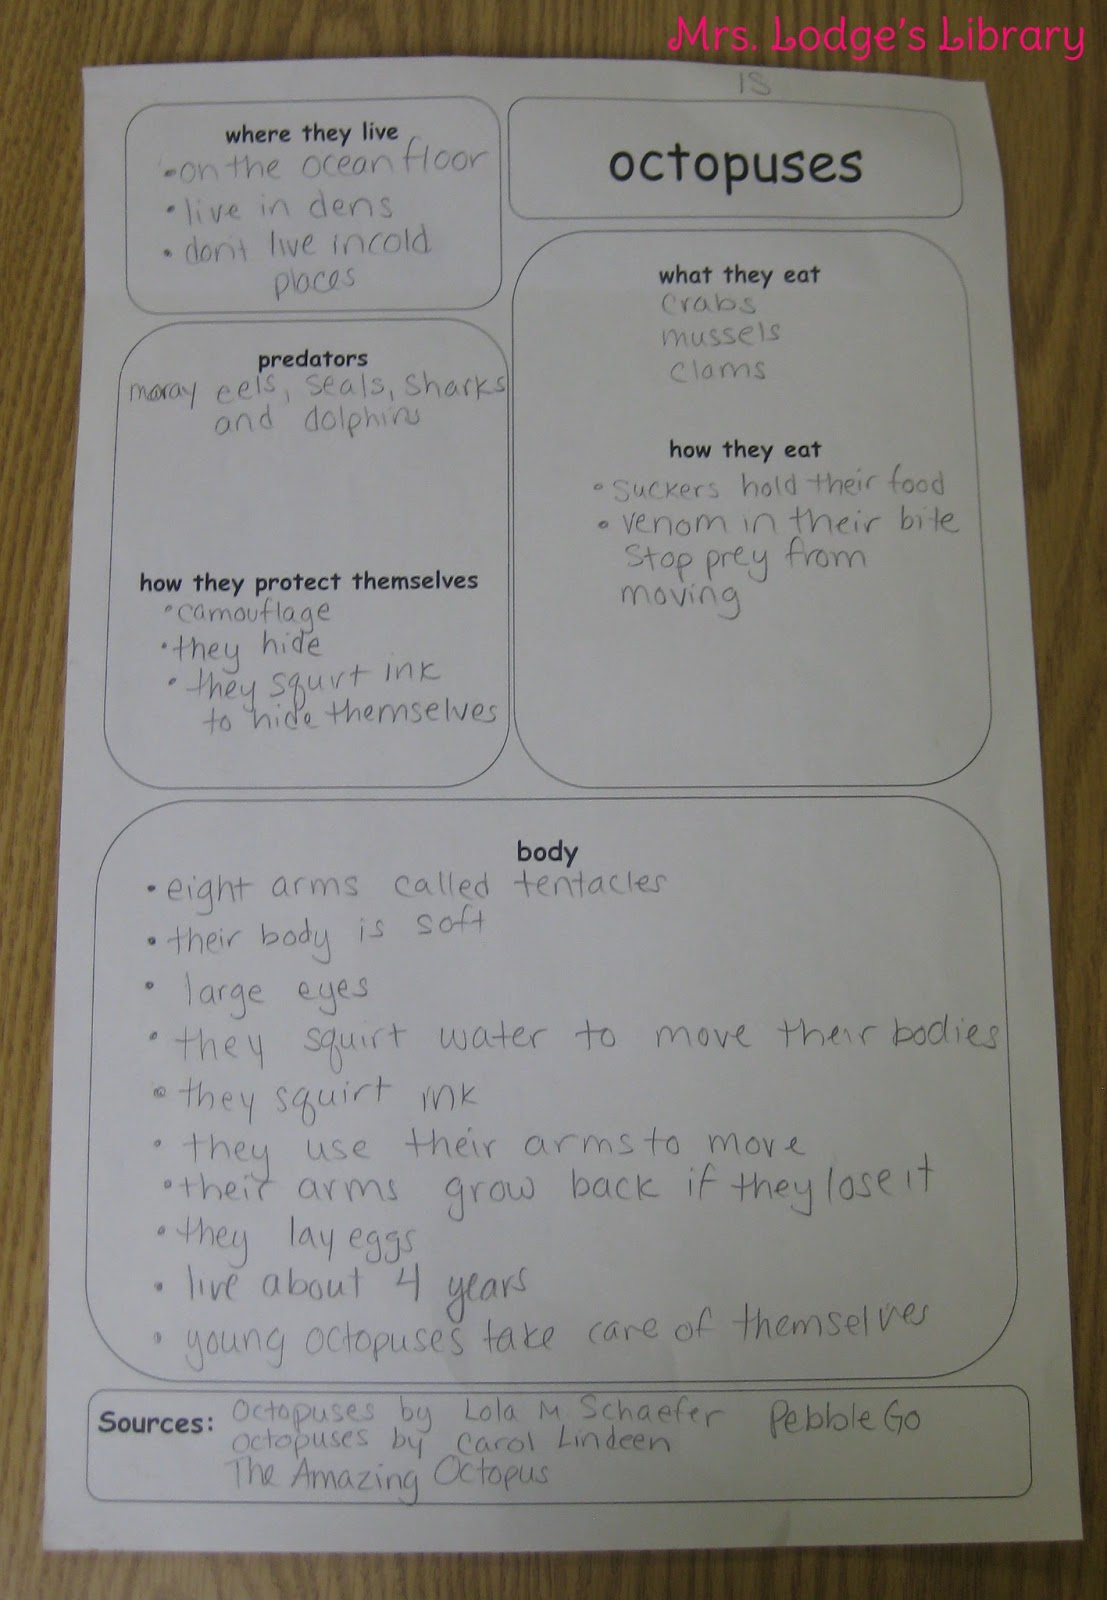 Mrs. Lodge's Library
IS
octopuses
where they live
• on the ocean floor
• live in dens
• don't live in cold
places
what they eat
crabs
mussels
clams
how they eat
• suckers hold their food
• venom in their bite
stop prey from
moving
predators
moray eels, seals, sharks
and dolphins
how they protect themselves
• camouflage
• they hide
• they squirt ink
to hide themselves
body
• eight arms called tentacles
• their body is soft
• large eyes
• they squirt water to move their bodies
• they squirt ink
• they use their arms to move
• their arms grow back if they lose it
• they lay eggs
• live about 4 years
• young octopuses take care of themselves
Sources: Octopuses by Lola M Schaefer Pebble Go
octopuses by Carol Lindeen
The Amazing Octopus